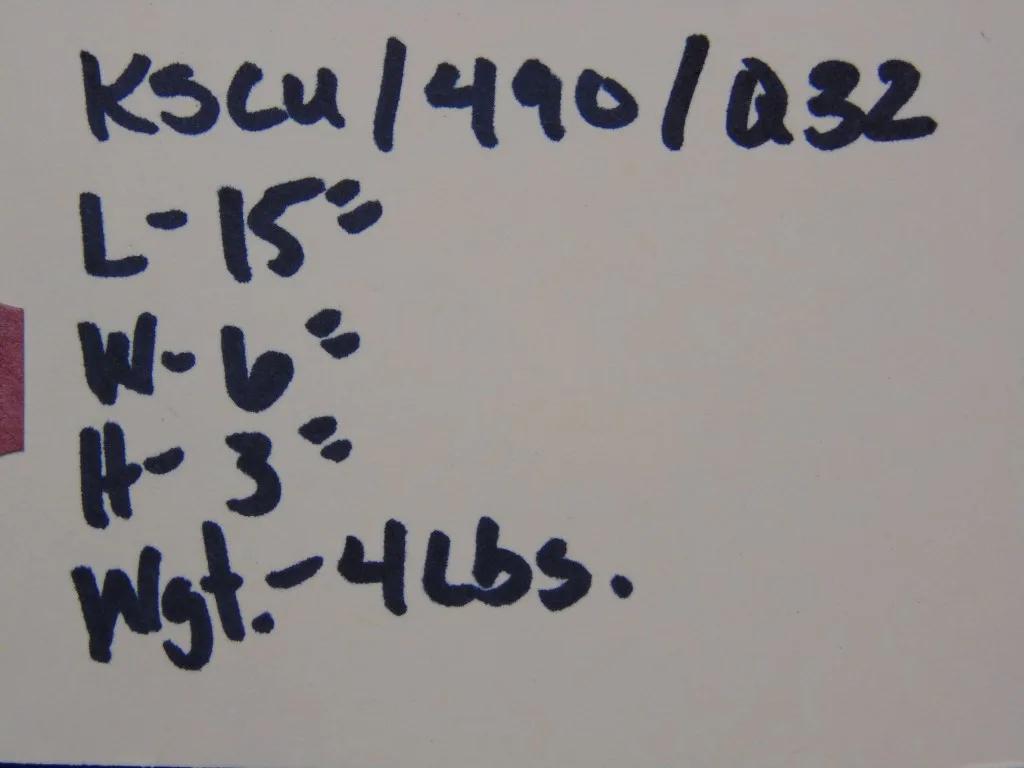 KSCU/490/Q32
L- 15"
W- 6"
H- 3"
Wgt.- 4Lbs.